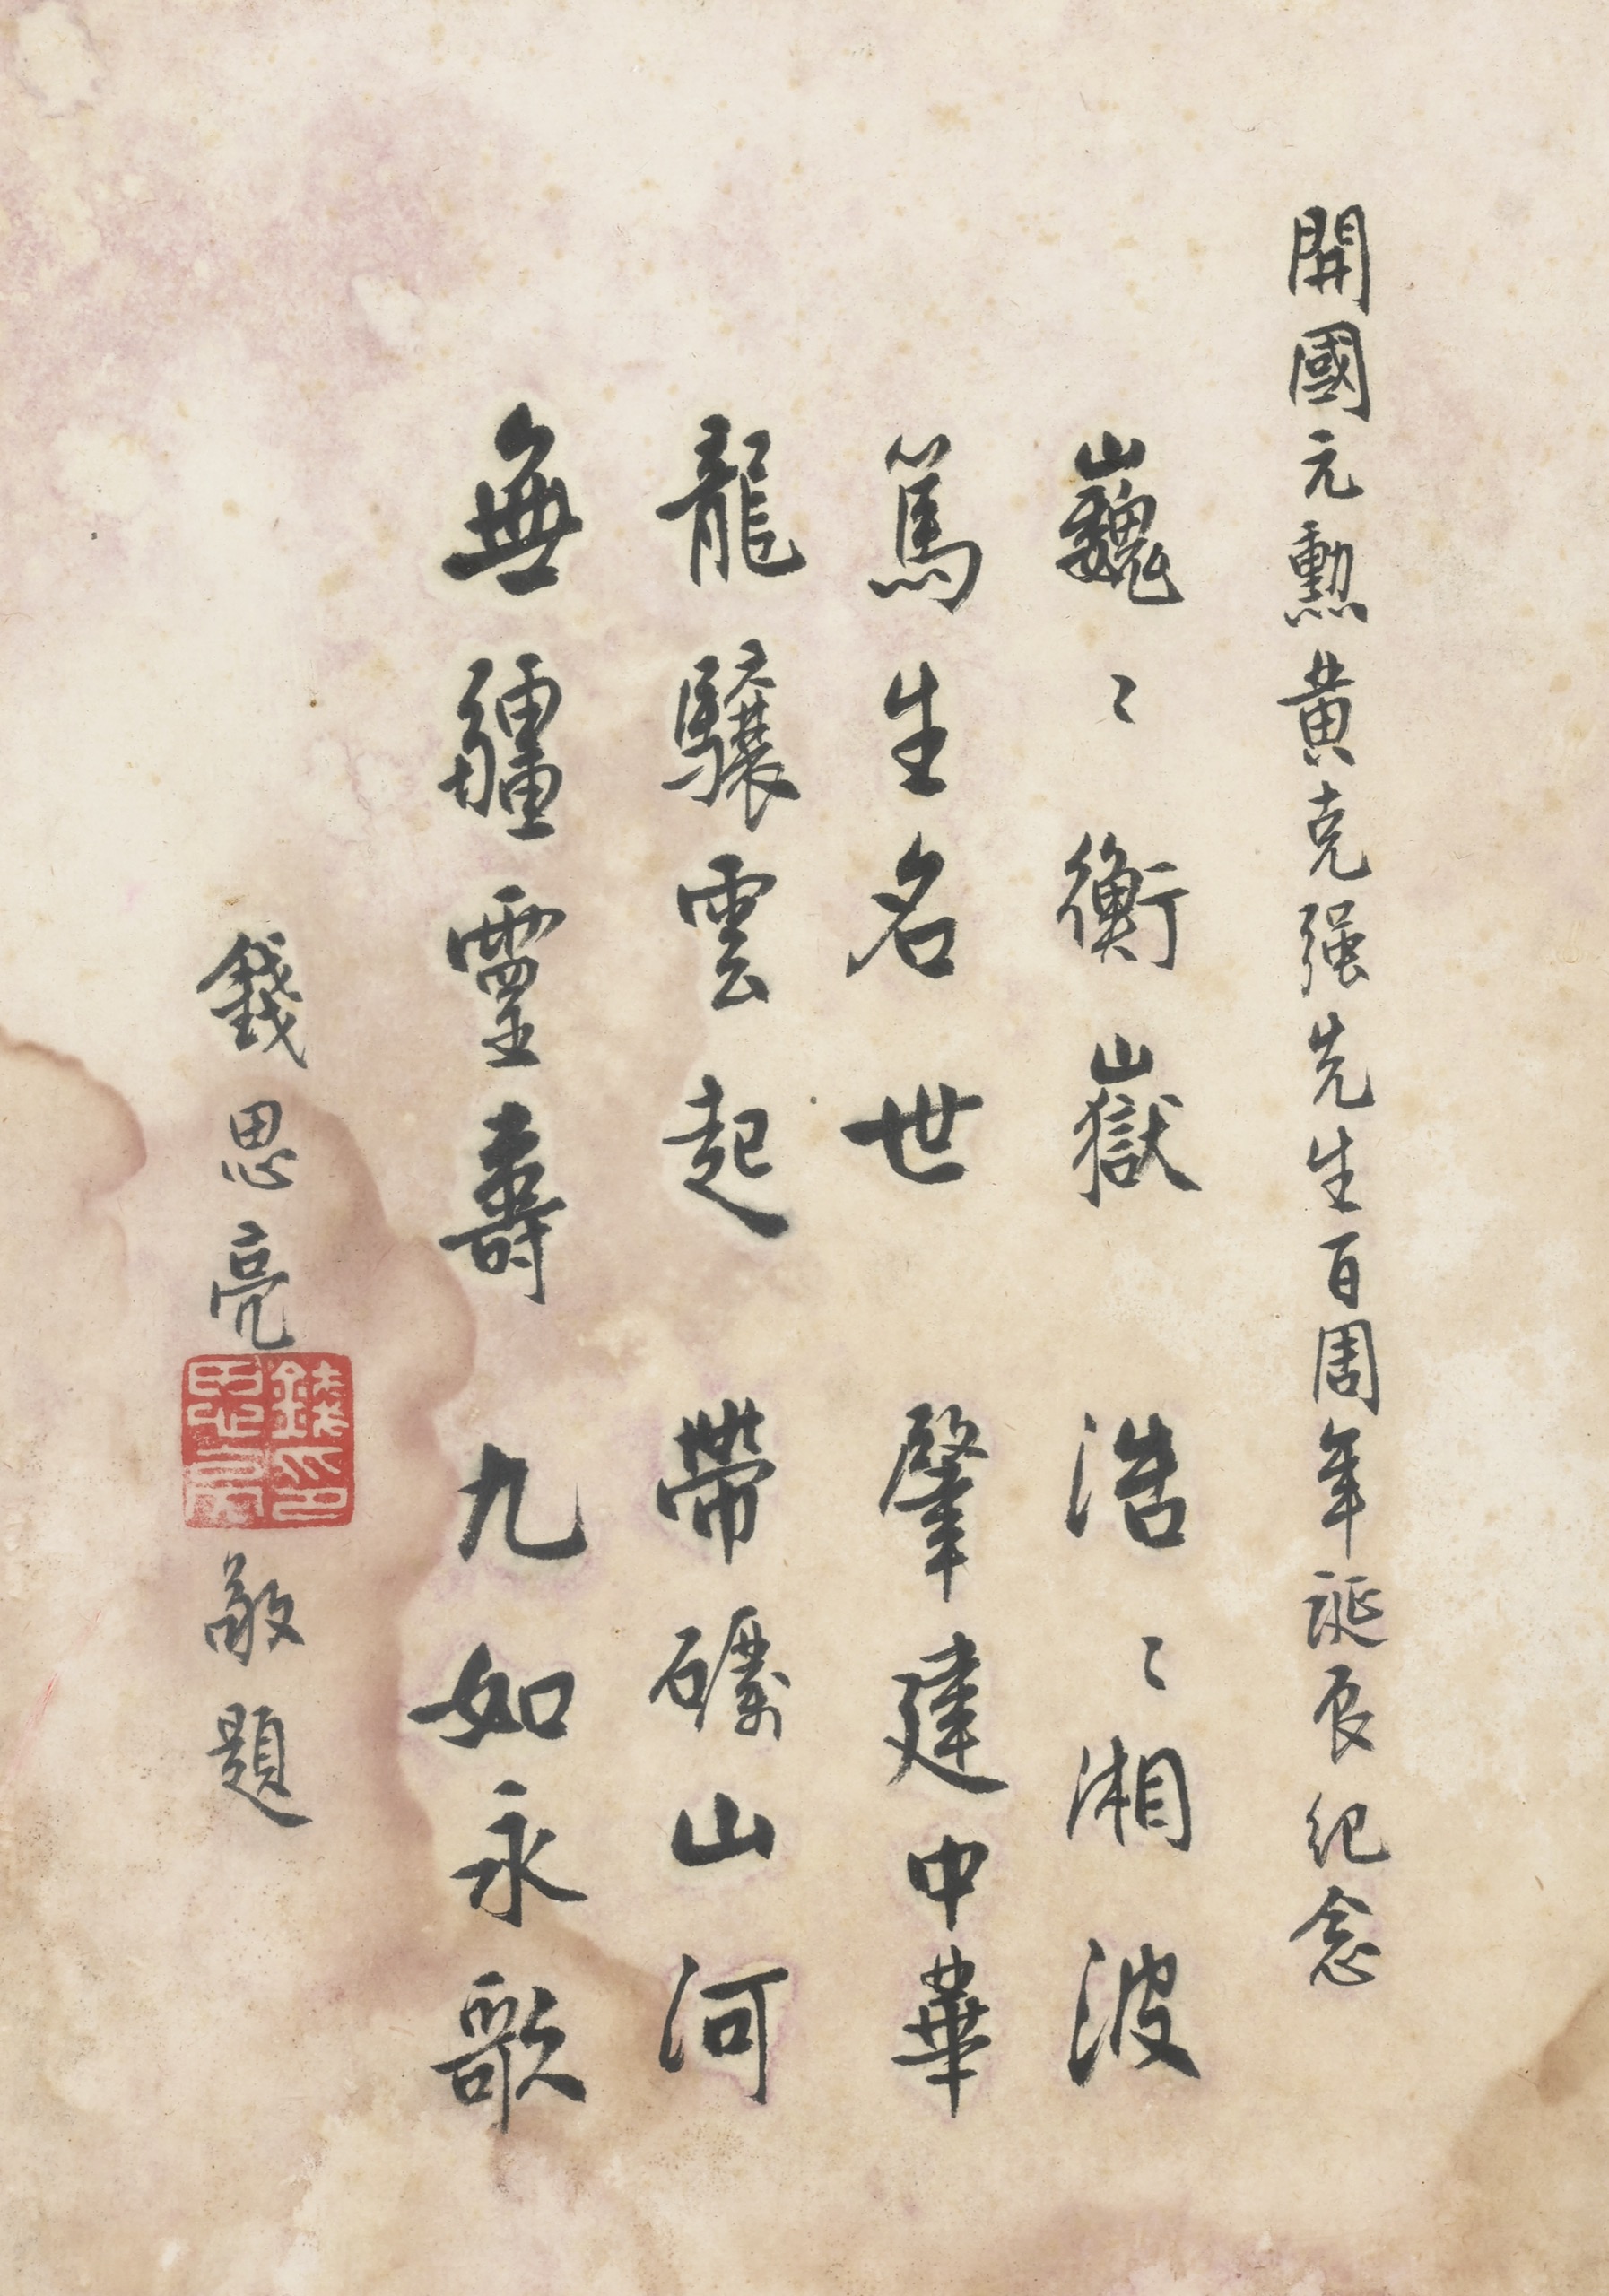 開國元勳黃克强先生百周年誕辰紀念
巍〻衡嶽 浩〻湘波
篤生名世 肇建中華
龍驤雲起 帶礪山河
無疆靈壽 九如永歌
錢思亮敬題
錢思亮印